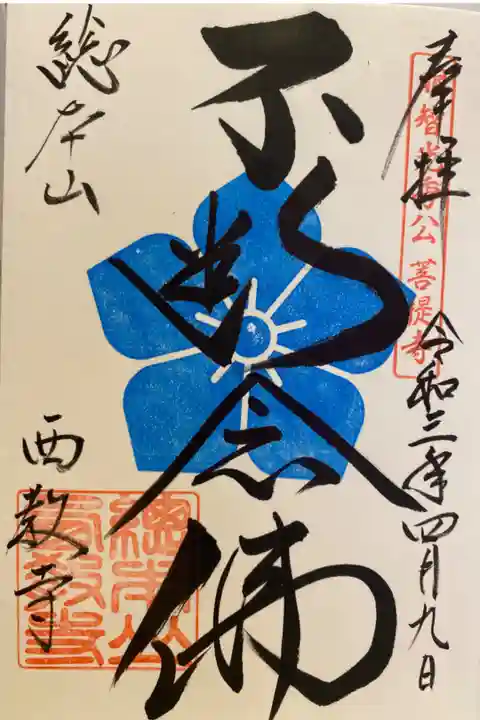 奉拝
明智光秀公菩提寺
令和三年四月九日
不断念佛
総本山
西教寺
總本山
西教寺